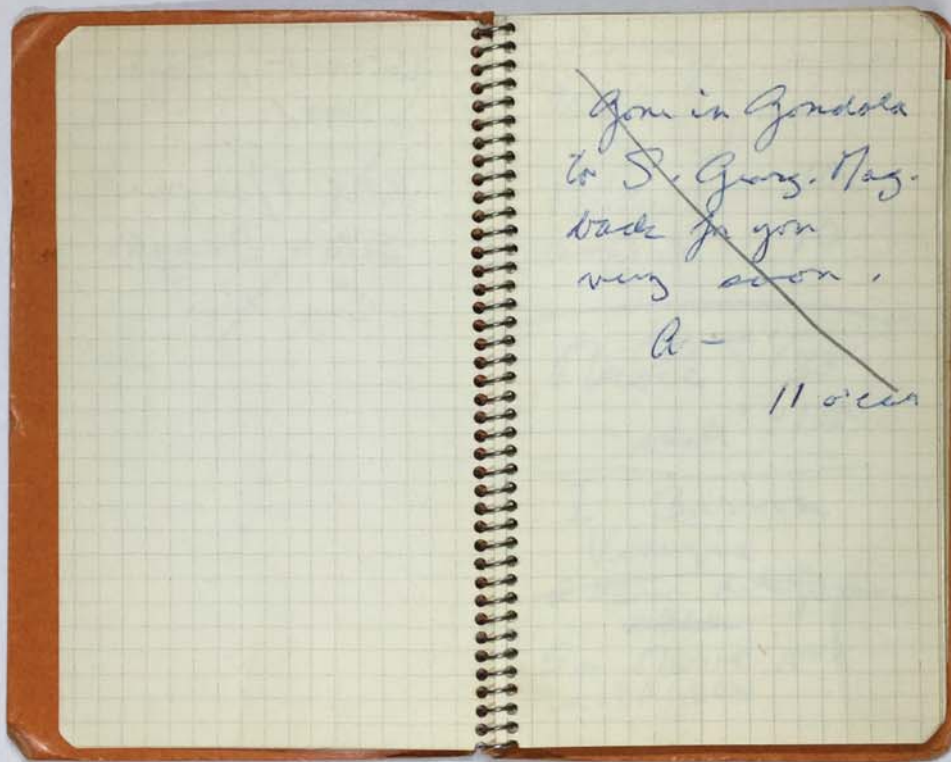 Gone in Gondola
to S. Giorg. Mag.
back for you
very soon.
A -
11 o'clock